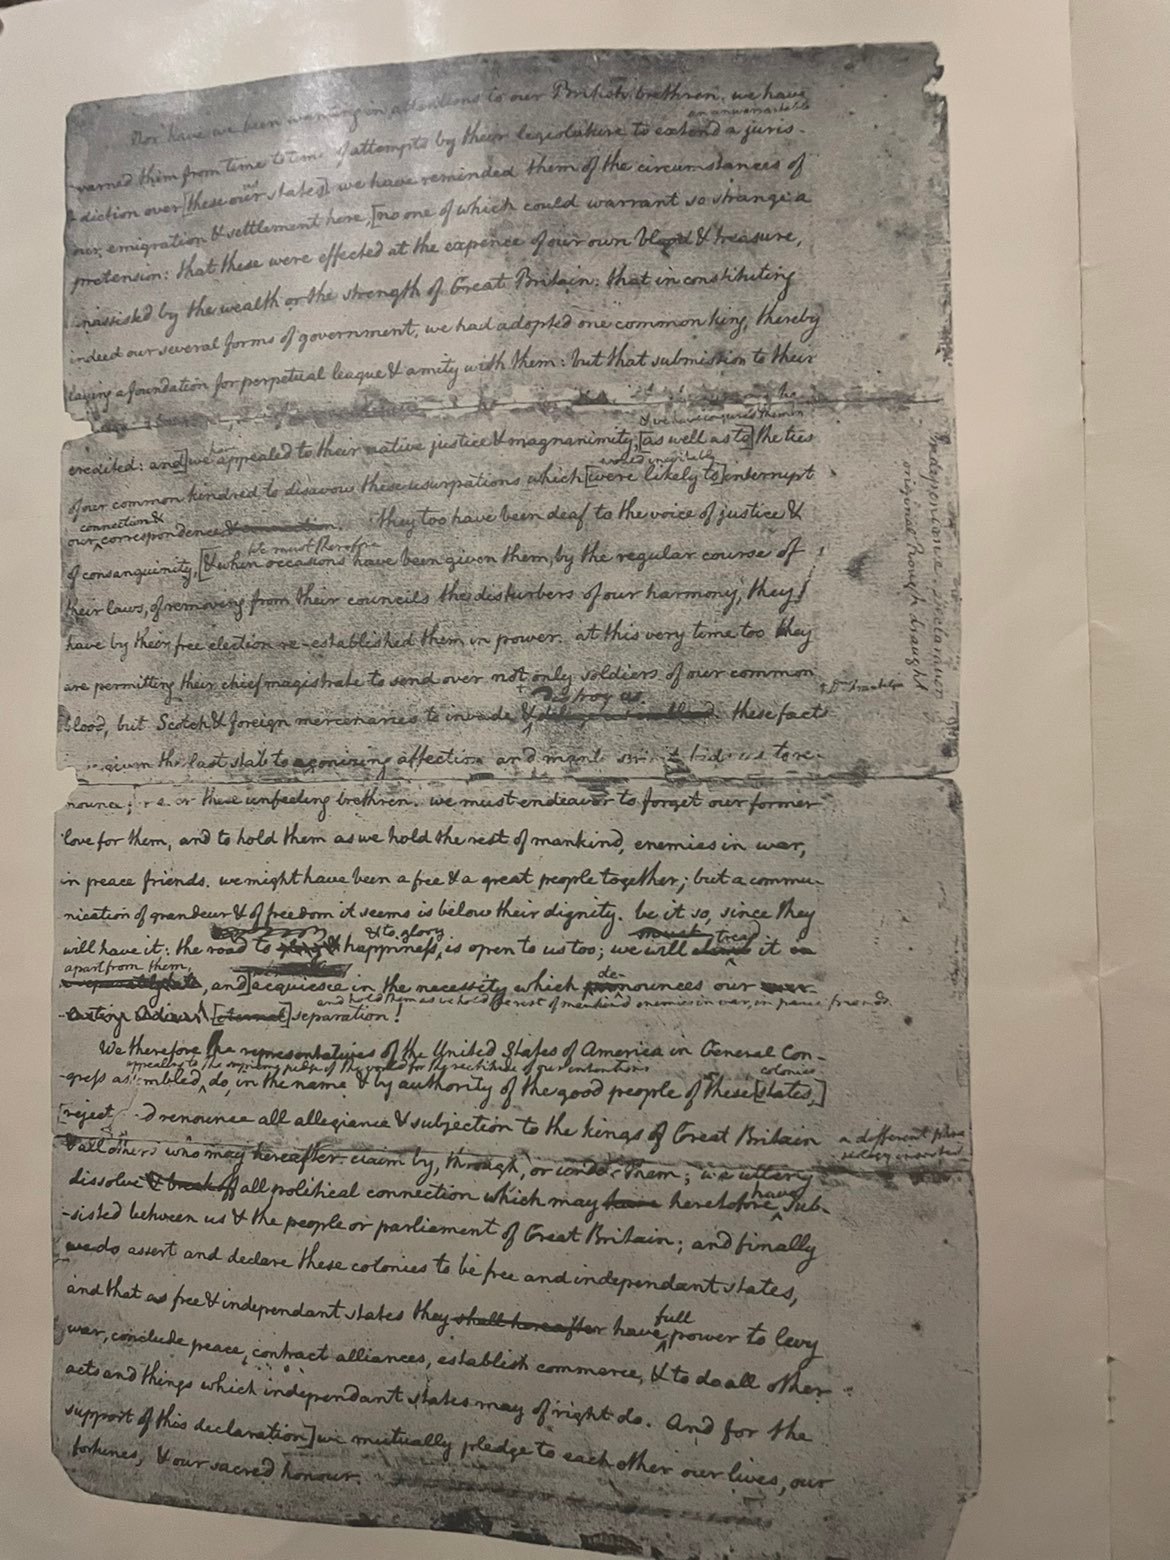 Nor have we been wanting in attentions to our British brethren. we have
an unwarrantable
warned them from time to time of attempts by their legislature to extend a juris-
us
-diction over [these our states] we have reminded them of the circumstances of
our emigration & settlement here, [no one of which could warrant so strange a
pretension: that these were effected at the expence of our own blood & treasure,
unassisted by the wealth or the strength of Great Britain: that in constituting
indeed our several forms of government, we had adopted one common king, thereby
laying a foundation for perpetual league & amity with them: but that submission to their
& we have conjured them by
credited: and] we have appealed to their native justice & magnanimity, [as well as to] the ties
would inevitably
of our common kindred to disavow these usurpations which [were likely to] interrupt
connection &
our correspondence & connection. they too have been deaf to the voice of justice &
we must therefore
of consanguinity, [& when occasions have been given them, by the regular course of
their laws, of removing from their councils the disturbers of our harmony, they
have by their free election re-established them in power. at this very time too they
are permitting their chief magistrate to send over not only soldiers of our common
destroy us
Dr. Franklin
blood, but Scotch & foreign mercenaries to invade & these facts
given the last stab to agonizing affection and manly bids us to re-
nounce these unfeeling brethren. we must endeavor to forget our former
love for them, and to hold them as we hold the rest of mankind, enemies in war,
in peace friends. we might have been a free & a great people together; but a commu-
nication of grandeur & of freedom it seems is below their dignity. be it so, since they
& to glory
must tread
will have it: the road to happiness, is open to us too; we will it
apart from them,
, and] acquiesce in the necessity which denounces our
and hold them as we hold the rest of mankind enemies in war, in peace friends.
[eternal] separation!
We therefore the representatives of the United States of America in General Con-
appealing to the supreme judge of the world for the rectitude of our intentions
colonies
-gress assembled, do, in the name & by authority of the good people of these [states,]
[reject renounce all allegiance & subjection to the kings of Great Britain
a different phra
& all others who may hereafter claim by, through, or under them; we utterly
dissolve & break off all political connection which may have heretofore have sub-
-sisted between us & the people or parliament of Great Britain; and finally
we do assert and declare these colonies to be free and independant states,
and that as free & independant states they shall hereafter have full power to levy
war, conclude peace, contract alliances, establish commerce, & to do all other
acts and things which independant states may of right do. And for the
support of this declaration] we mutually pledge to each other our lives, our
fortunes, & our sacred honour.
original Rough draught